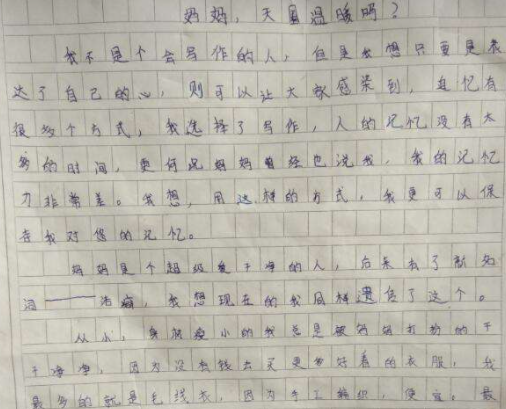 妈妈，天国温暖吗？
我不是个会写作的人，但是我想只要是表
达了自己的心，则可以让大家感染到，追忆有
很多个方式，我选择了写作，人的记忆没有太
多的时间，更何况妈妈曾经也说我，我的记忆
力非常差。我想，用这样的方式，我更可以保
存我对您的记忆。
妈妈是个超级爱干净的人，后来有了新名
词——洁癖，我想现在的我同样遗传了这个。
从小，身体瘦小的我总是被妈妈打扮的干
干净净，因为没有钱去买更多好看的衣服，我
最多的就是毛线衣，因为手工编织，便宜。最